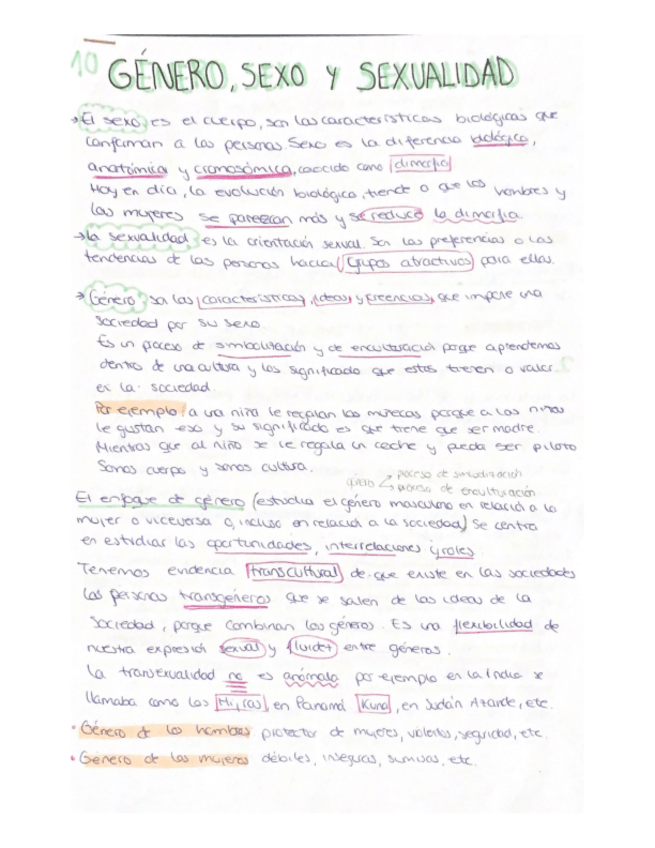 10 GÉNERO, SEXO Y SEXUALIDAD
→ El sexo es el cuerpo, son las características biológicas que
conforman a las personas. Sexo es la diferencia biológica,
anatómica y cromosómica, conocido como dimorfia
Hoy en día, la evolución biológica, tiende a que los hombres y
las mujeres se parezcan más y se reduce la dimorfia.
→ La sexualidad es la orientación sexual. Son las preferencias o las
tendencias de las personas hacia grupos atractivos para ellas.
→ Género son las características, ideas y creencias, que impone una
sociedad por su sexo.
Es un proceso de simbolización y de enculturación porque aprendemos
dentro de una cultura y los significado que estos tienen o valor
en la sociedad.
Por ejemplo a una niña le regalan las muñecas porque a las niñas
le gustan eso y su significado es que tiene que ser madre.
Mientras que al niño se le regala un coche y pueda ser piloto
Somos cuerpo y somos cultura.
género proceso de simbolización
proceso de enculturación
El enfoque de género (estudia el género masculino en relación a la
mujer o viceversa o, incluso en relación a la sociedad) Se centra
en estudiar las oportunidades, interrelaciones y roles.
Tenemos evidencia transcultural de que existe en las sociedades
las personas transgéneros que se salen de las ideas de la
sociedad, porque combinan los géneros. Es una flexibilidad de
nuestra expresión sexual y fluidez entre géneros.
La transexualidad no es anómala por ejemplo en la India se
llamaba como los Hijras, en Panamá Kuna, en Sudán Azande, etc.
• Género de los hombres protector de mujeres, violentos, seguridad, etc.
• Género de las mujeres débiles, inseguras, sumisas, etc.